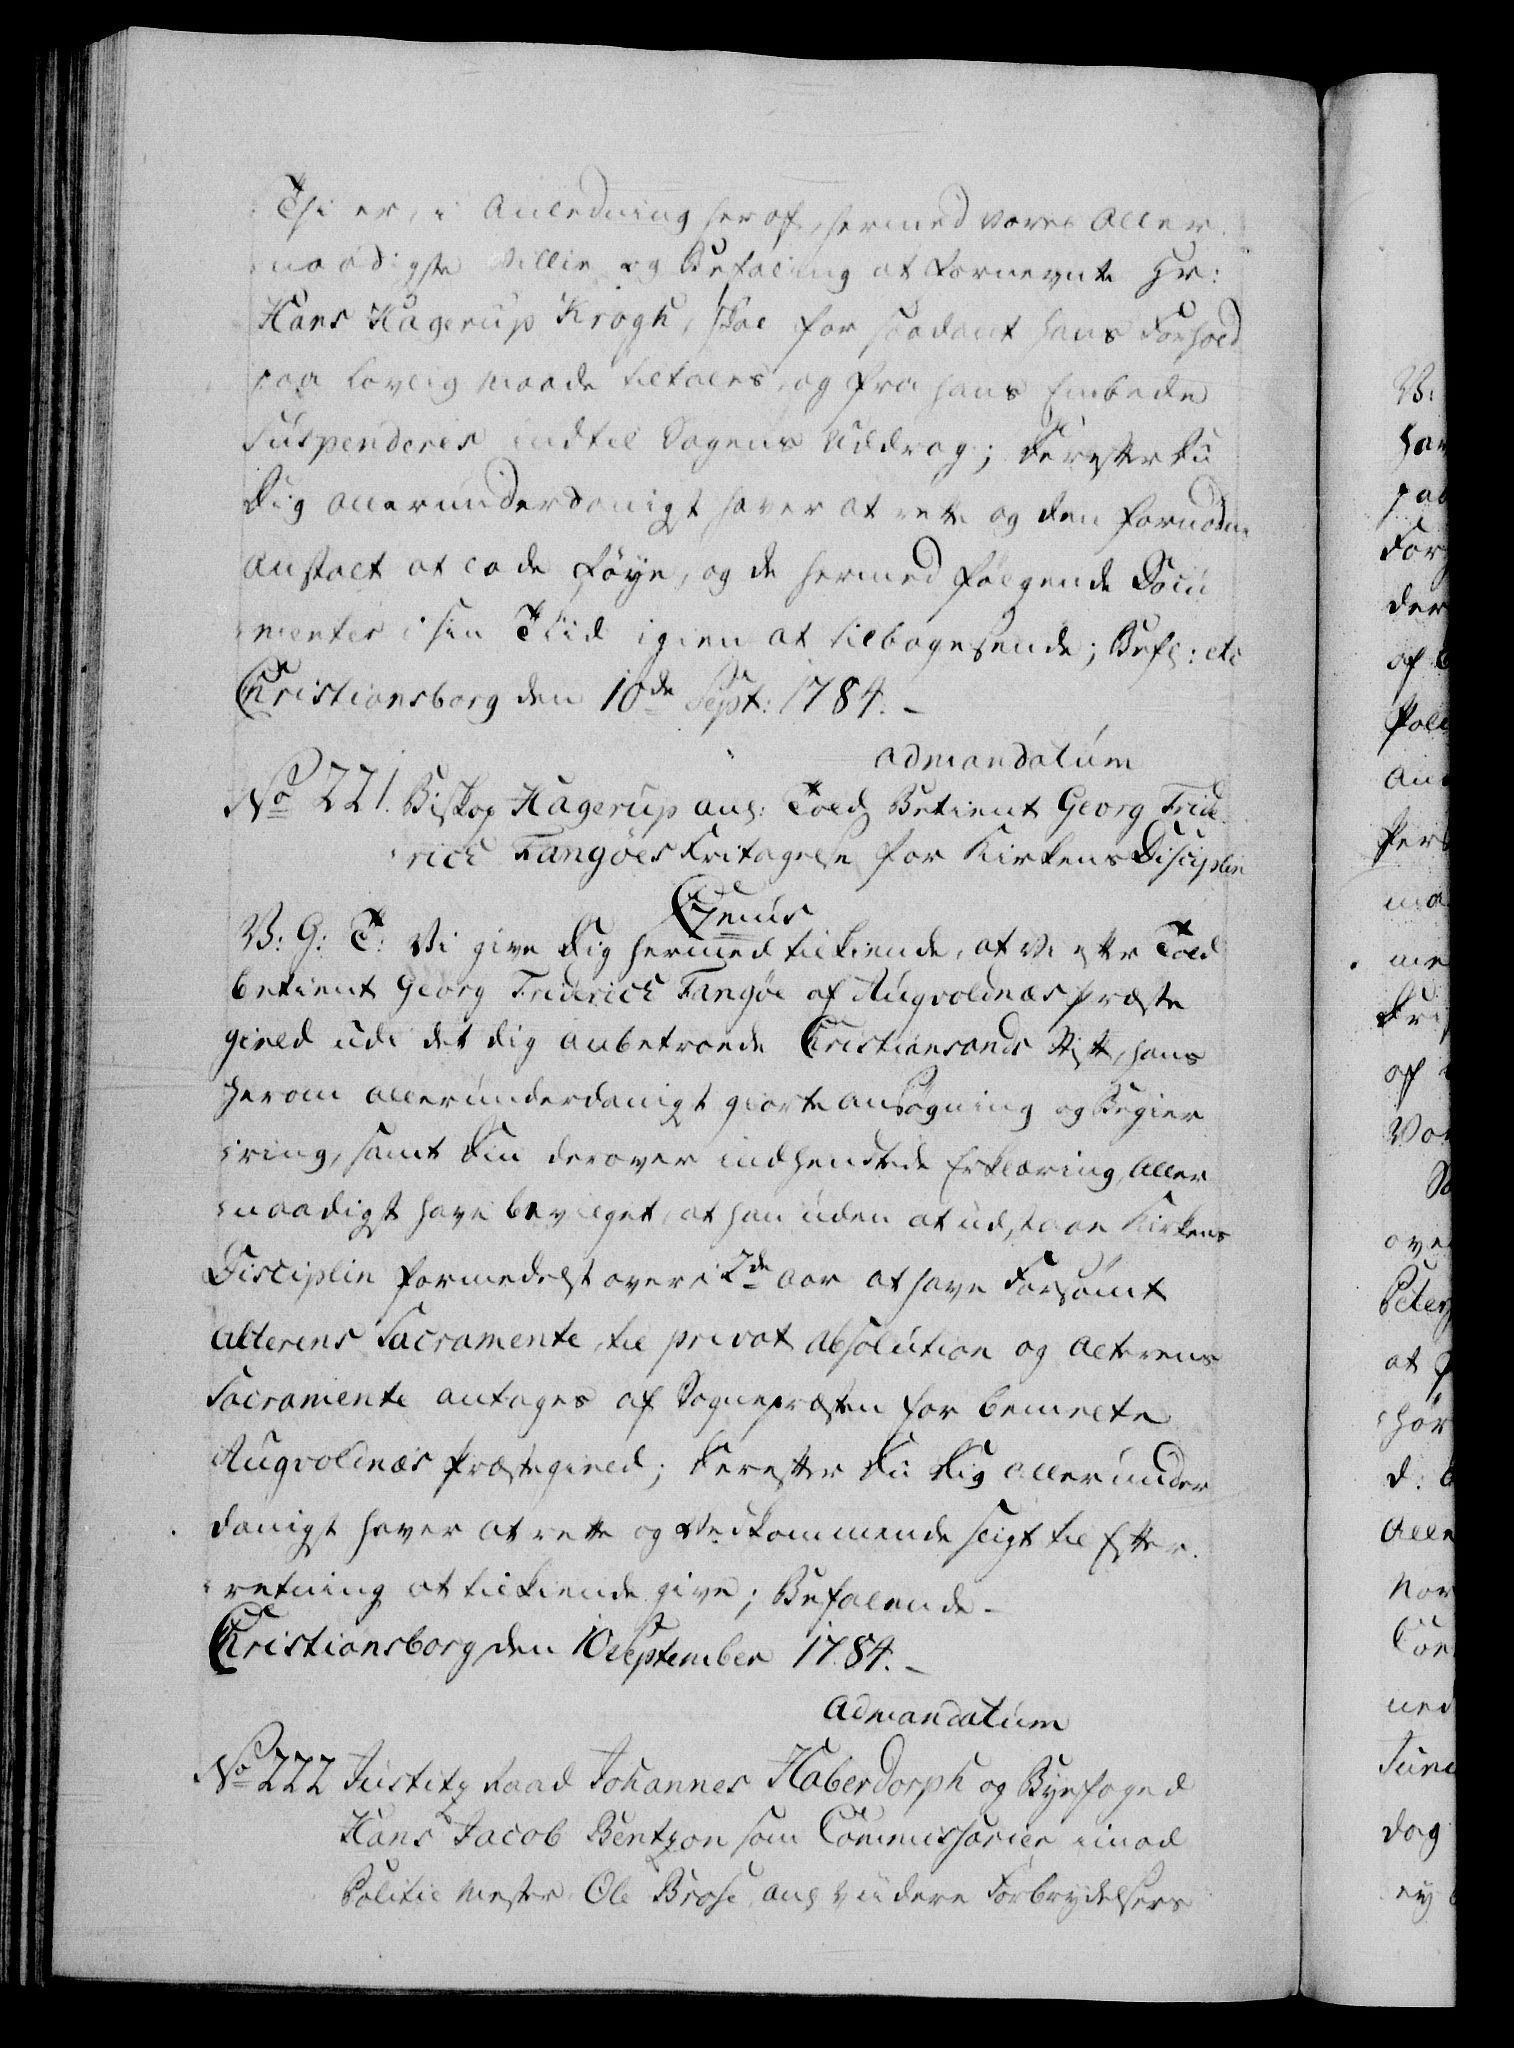 Thi er, i Anledning heraf, hermed Vores Aller
naadigste Villie og Befaling at fornevnte Hr:
Hans Hagerup Krogh, skal for saadant hans Forhold
paa lovlig Maade tiltales, og fra hans Embede
Suspenderes indtil Sagens Uddrag; Derefter Du
Dig allerunderdanigst haver at rette og den fornødne
Anstalt at lade føye, og de hermed følgende Docu
menter i sin Tiid igien at tilbagesende; Befl: etc
Christiansborg den 10de Sept: 1784. -
ad mandatum
No 221. Biskop Hagerup ang: Told Betient Georg Fride
rich Fangøes Fritagelse for Kirkens Disciplin
V: G: T: Vi give Dig hermed tilkiende, at Vi efter Told
betient Georg Friderich Fangøe af Augvoldnæs Præste
gield udi det dig anbetroede Christiansands Stift, hans
herom allerunderdanigst giorte ansøgning og Begier
ring, samt Din derover indhentede Erklæring, Aller
naadigst have bevilget, at han uden at udstaae Kirkens
Disciplin formedelst over i 2de aar at have Forsømt
Alterens Sacramente, til privat Absolution og Alterens
Sacramente antages af Sognepræsten for bemelte
Augvoldnæs Præstegield; Derefter Du Dig allerunder
danigst haver at rette og Vedkommende sligt til Efter
retning at tilkiende give; Befalende -
Christiansborg den 10 September 1784. -
ad mandatum
No 222 Justitz Raad Johannes Haberdorph og Byefoged
Hans Jacob Bentzon som Commissarier imod
Politie Mester Ole Brose ang videre Forbrydelsers